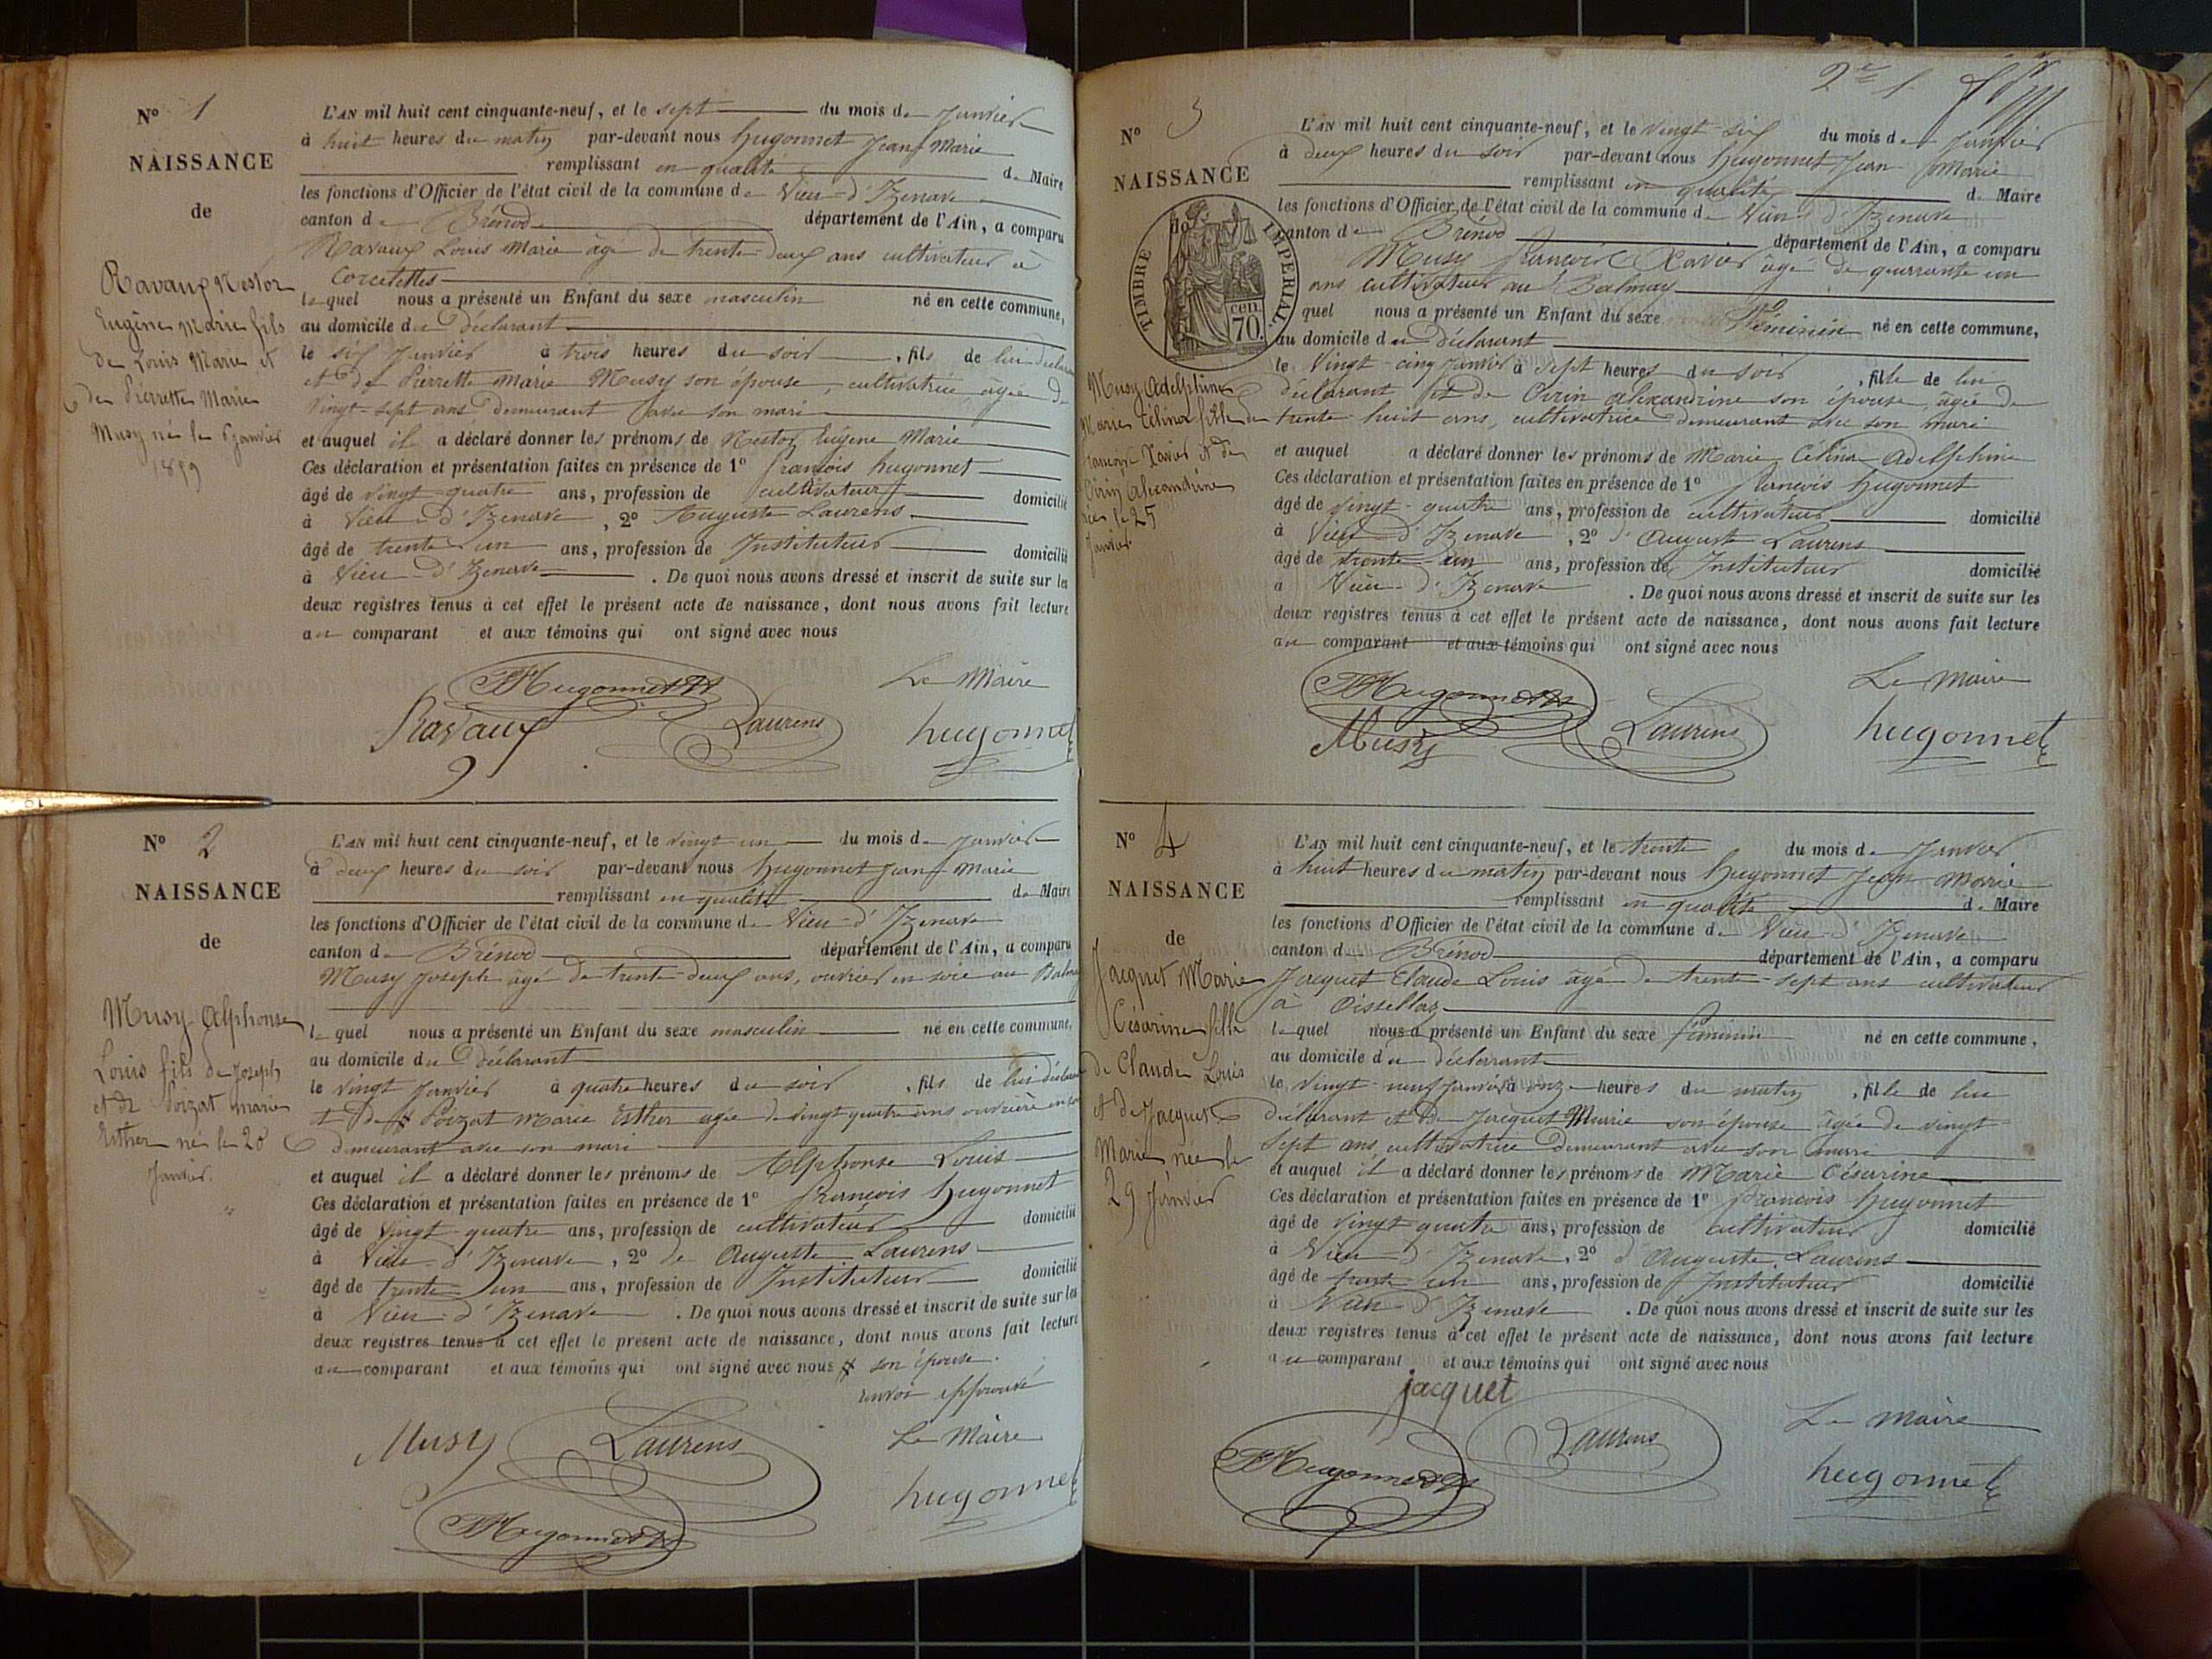 N° 1
NAISSANCE
de
Ravaux Nestor
Eugène Marie fils
de Louis Marie et
de Pierrette Marie
Musy né le 6 janvier
1859
L'AN mil huit cent cinquante-neuf, et le sept du mois de Janvier
à huit heures du matin par-devant nous hugonnet Jean Marie
remplissant en qualité de Maire
les fonctions d'Officier de l'état civil de la commune de Vieu-d'Izenave
canton de Brénod département de l'Ain, a comparu
Ravaux Louis Marie âgé de trente-deux ans cultivateur à
Corcelettes
lequel nous a présenté un Enfant du sexe masculin né en cette commune,
au domicile du déclarant
le six Janvier à trois heures du soir, fils de lui déclarant
et de Pierrette Marie Musy son épouse, cultivatrice, âgée de
vingt-sept ans demeurant avec son mari
et auquel il a déclaré donner les prénoms de Nestor Eugène Marie
Ces déclaration et présentation faites en présence de 1° francois hugonnet
âgé de vingt-quatre ans, profession de cultivateur domicilié
à Vieu-d'Izenave, 2° Auguste Laurens
âgé de trente un ans, profession de Instituteur domicilié
à Vieu-d'Izenave. De quoi nous avons dressé et inscrit de suite sur les
deux registres tenus à cet effet le présent acte de naissance, dont nous avons fait lecture
au comparant et aux témoins qui ont signé avec nous
Hugonnet
Le Maire
Ravaux
Laurens
hugonnet
N° 2
NAISSANCE
de
Musy Alphonse
Louis fils de Joseph
et de Poizat marie
Esther né le 20
Janvier.
L'AN mil huit cent cinquante-neuf, et le vingt-un du mois de Janvier
à deux heures du soir par-devant nous hugonnet Jean Marie
remplissant en qualité de Maire
les fonctions d'Officier de l'état civil de la commune de Vieu-d'Izenave
canton de Brénod département de l'Ain, a comparu
Musy Joseph âgé de trente-deux ans, ouvrier en soie au Balmay
lequel nous a présenté un Enfant du sexe masculin né en cette commune,
au domicile du déclarant
le vingt Janvier à quatre heures du soir, fils de lui déclarant
et de Poizat Marie Esther agée de vingt quatre ans ouvrière en soie
demeurant avec son mari
et auquel il a déclaré donner les prénoms de Alphonse Louis
Ces déclaration et présentation faites en présence de 1° francois hugonnet
âgé de vingt-quatre ans, profession de cultivateur domicilié
à Vieu-d'Izenave, 2° de Auguste Laurens
âgé de trente un ans, profession de Instituteur domicilié
à Vieu-d'Izenave. De quoi nous avons dressé et inscrit de suite sur les
deux registres tenus à cet effet le présent acte de naissance, dont nous avons fait lecture
au comparant et aux témoins qui ont signé avec nous son épouse.
envoi approuvé
Musy
Laurens
Le Maire
Hugonnet
hugonnet
N° 3
NAISSANCE
de
TIMBRE IMPERIAL
70 cen
Musy Adelphine
Marie Célina fille de
francois Xavier et de
Oirin Alexandrine
née le 25
Janvier
L'AN mil huit cent cinquante-neuf, et le vingt-six du mois de Janvier
à deux heures du soir par-devant nous hugonnet Jean Marie
remplissant en qualité de Maire
les fonctions d'Officier de l'état civil de la commune de Vieu d'Izenave
canton de Brénod département de l'Ain, a comparu
Musy francois Xavier âgé de quarante un
ans cultivateur au Balmay
quel nous a présenté un Enfant du sexe féminin né en cette commune,
au domicile du déclarant
le vingt-cinq Janvier à sept heures du soir, fille de lui
déclarant et de Oirin Alexandrine son épouse, âgée de
trente-huit ans, cultivatrice demeurant avec son mari
et auquel a déclaré donner les prénoms de Marie Célina Adelphine
Ces déclaration et présentation faites en présence de 1° francois hugonnet
âgé de vingt-quatre ans, profession de cultivateur domicilié
à Vieu-d'Izenave, 2° d'Auguste Laurens
âgé de trente-un ans, profession de Instituteur domicilié
à Vieu-d'Izenave. De quoi nous avons dressé et inscrit de suite sur les
deux registres tenus à cet effet le présent acte de naissance, dont nous avons fait lecture
au comparant et aux témoins qui ont signé avec nous
Hugonnet
Le Maire
Musy
Laurens
hugonnet
N° 4
NAISSANCE
de
Jacquet Marie
Césarine fille
de Claude Louis
et de Jacquet
Marie née le
29 Janvier
L'AN mil huit cent cinquante-neuf, et le trente du mois de Janvier
à huit heures du matin par-devant nous hugonnet Jean Marie
remplissant en qualité de Maire
les fonctions d'Officier de l'état civil de la commune de Vieu d'Izenave
canton de Brénod département de l'Ain, a comparu
Jacquet Claude Louis âgé de trente-sept ans cultivateur
à Oissellaz
lequel nous a présenté un Enfant du sexe féminin né en cette commune,
au domicile du déclarant
le vingt-neuf Janvier à onze heures du matin, fille de lui
déclarant et de Jacquet Marie son épouse âgée de vingt
sept ans, cultivatrice demeurant avec son mari
et auquel il a déclaré donner les prénoms de Marie Césarine
Ces déclaration et présentation faites en présence de 1° francois hugonnet
âgé de vingt quatre ans, profession de cultivateur domicilié
à Vieu d'Izenave, 2° d'Auguste Laurens
âgé de trente un ans, profession de Instituteur domicilié
à Vieu-d'Izenave. De quoi nous avons dressé et inscrit de suite sur les
deux registres tenus à cet effet le présent acte de naissance, dont nous avons fait lecture
au comparant et aux témoins qui ont signé avec nous
jacquet
Laurens
Le Maire
Hugonnet
hugonnet